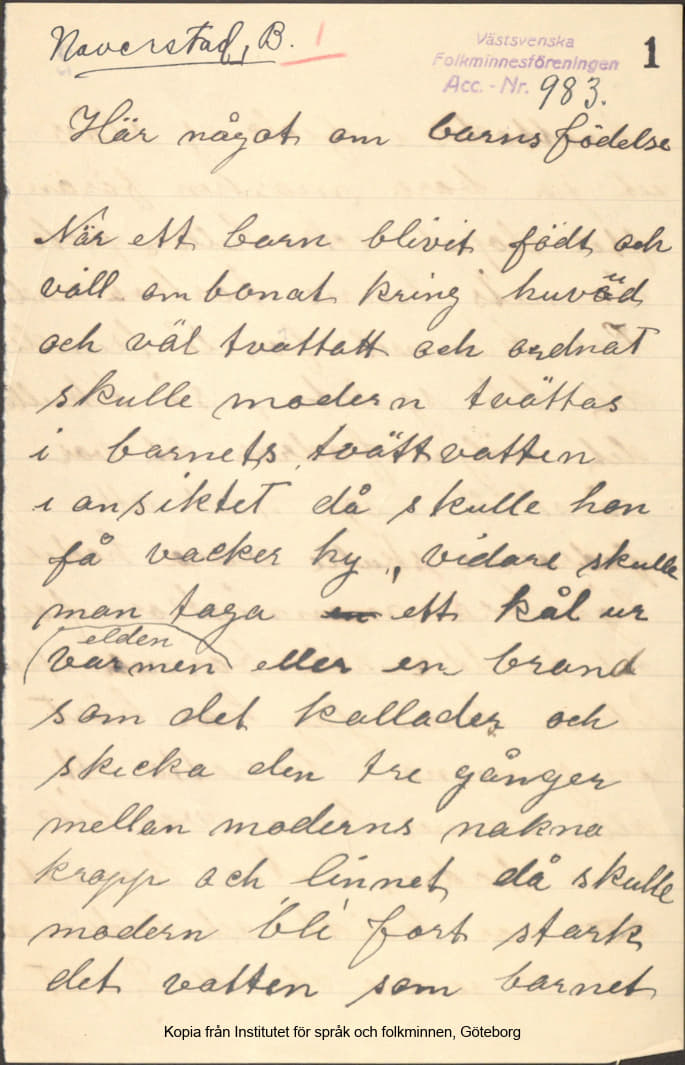 Naverstad, B. 1
Västsvenska
Folkminnesföreningen
Acc.-Nr. 983.
1
Här något om barns födelse
När ett barn blivit född och
väll ombonat kring huvud
och väl tvattatt och ordnat
skulle modern tvättas
i barnets tvättvatten
i ansiktet då skulle hon
få vacker hy, vidare skulle
man taga en ett kål ur
elden
varmen eller en brand
som det kallades och
skicka den tre gånger
mellan moderns nakna
kropp och linnet då skulle
modern bli fort stark
det vatten som barnet
Kopia från Institutet för språk och folkminnen, Göteborg